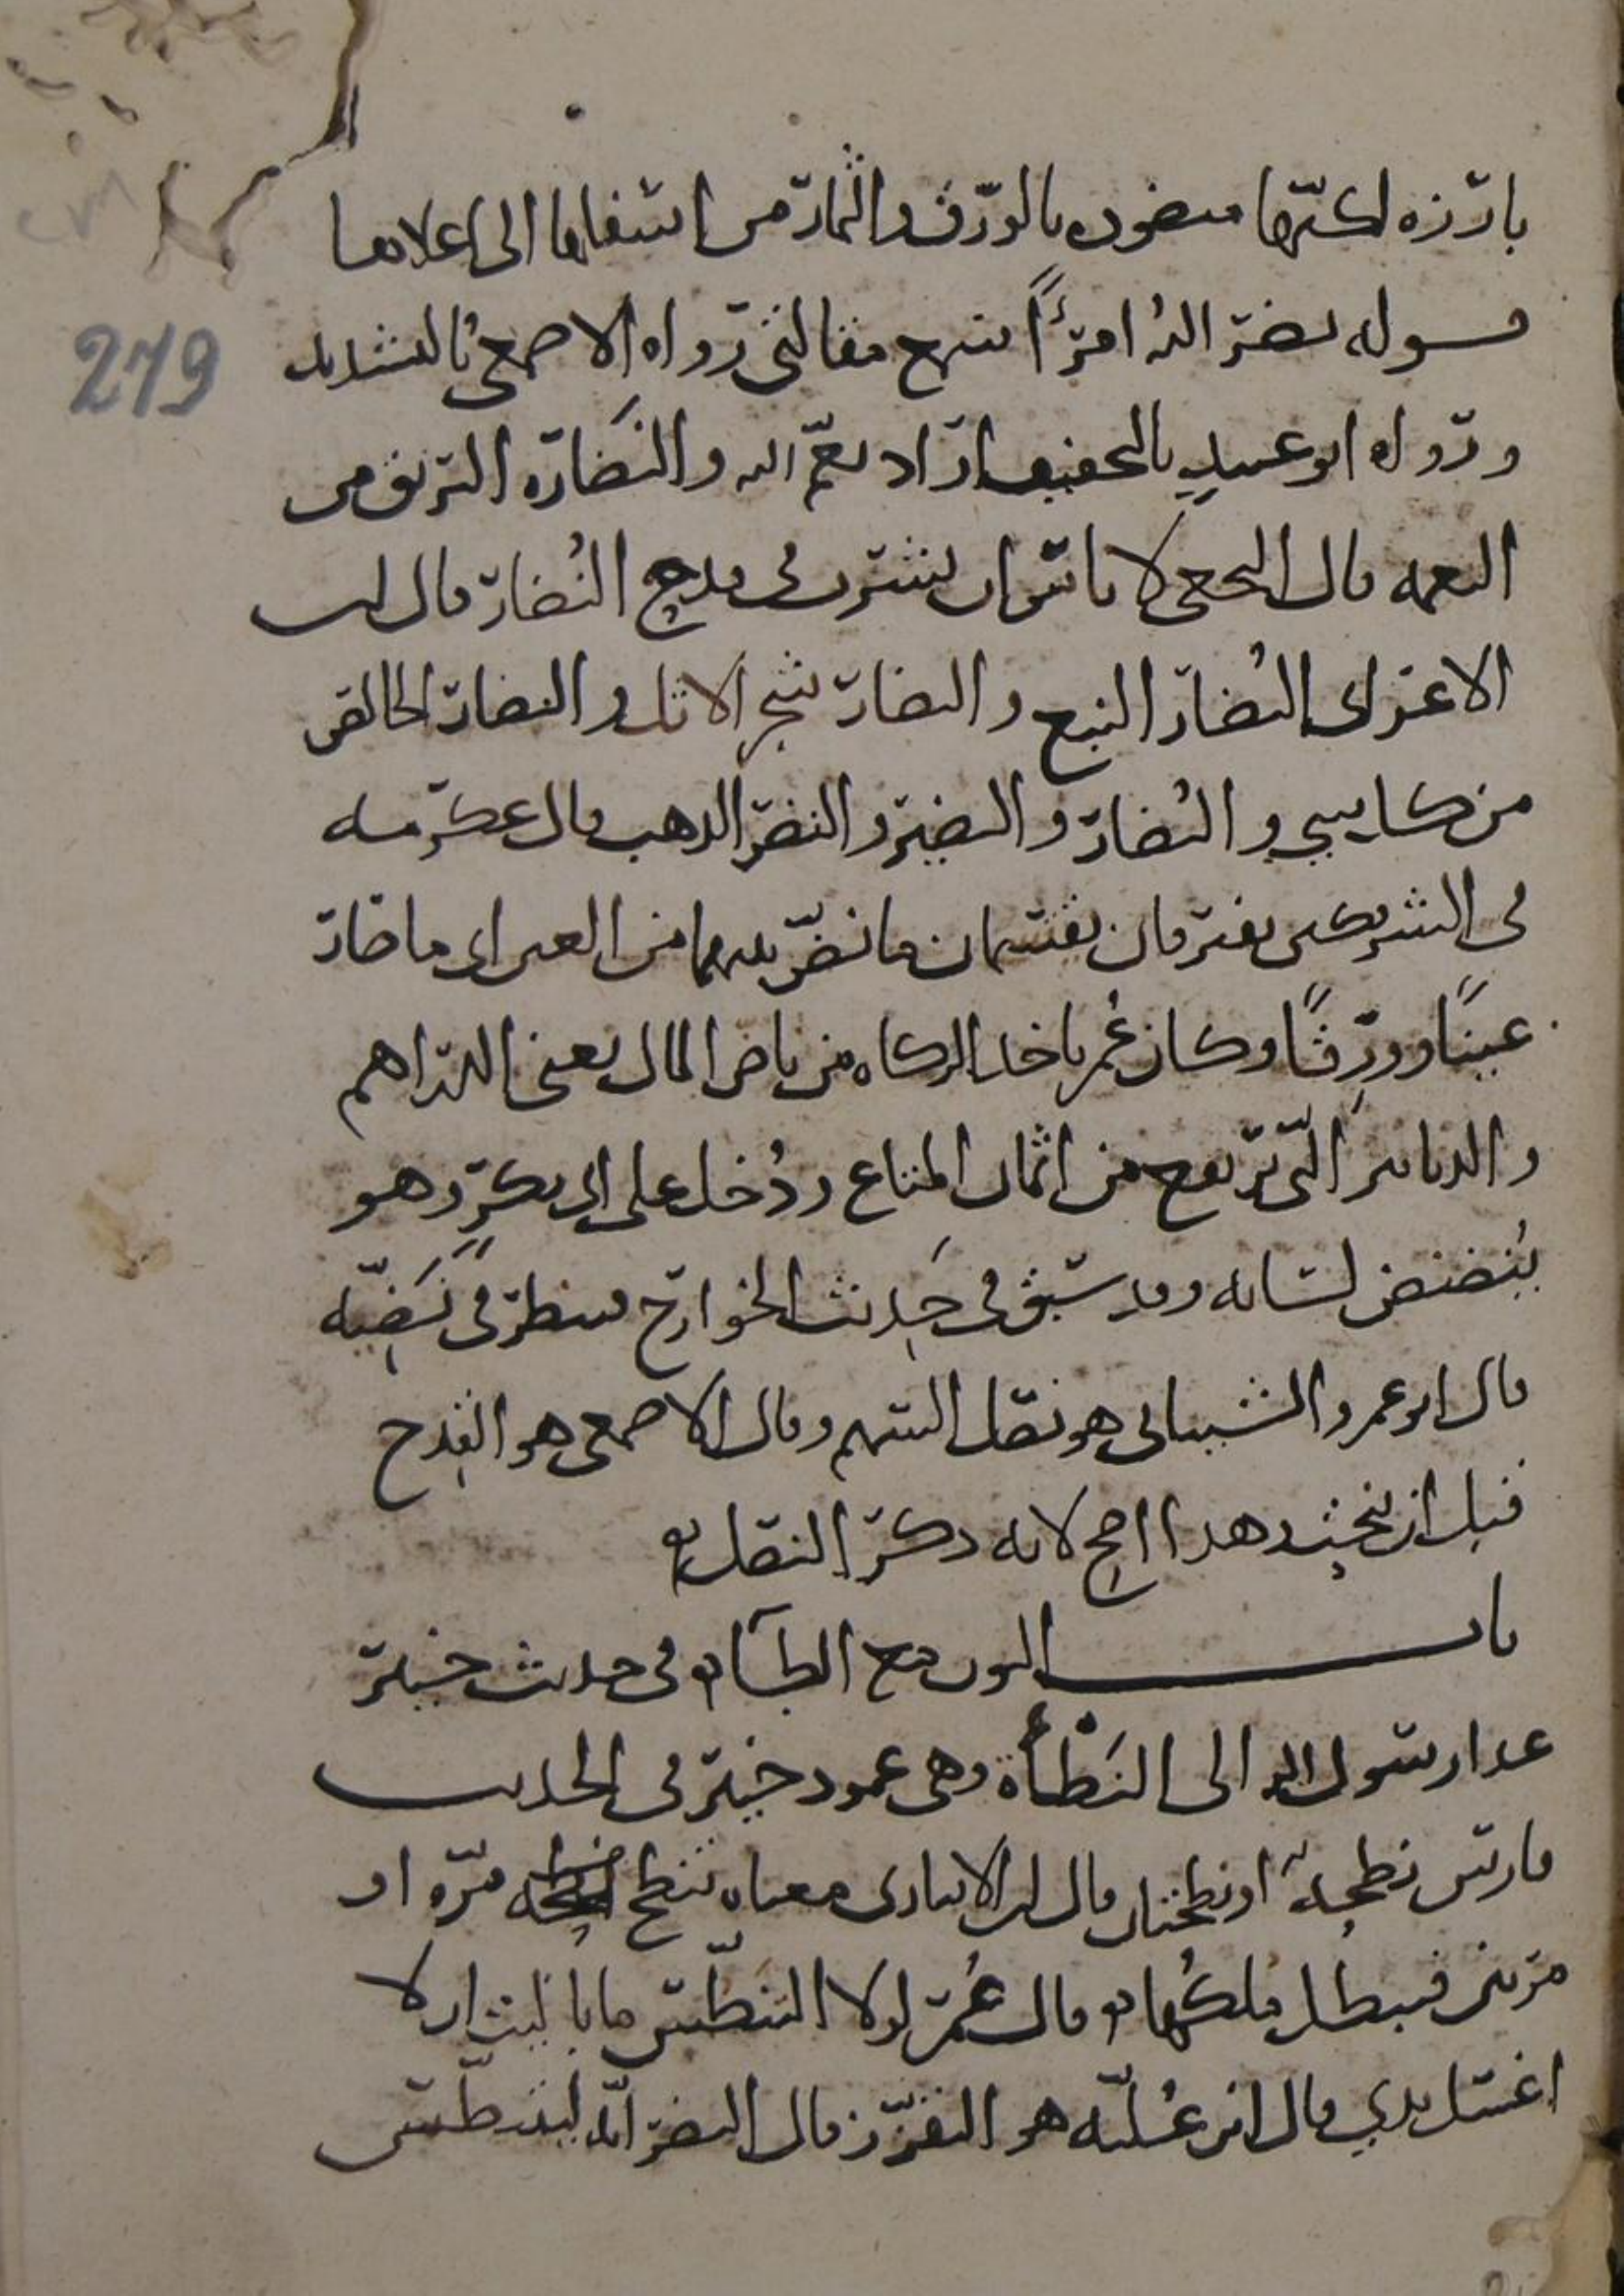 بارزه لكنها منضوده بالورق والثمار من اسفلها الى اعلاها
قوله نضر الله امرًأ سمع مقالتي رواه الاصمعي بالتشديد
ورواه ابو عبيد بالتخفيف اراد نعّم الله والنَضارة البريق من
النعمه قال النخعي لا باس ان يشرب في قدح النُضار قال ابن
الاعرابي النُضار النبع والنضار شجر الاثل والنضار الخالص
من كل شيء والنُضار والنضير والنضر الذهب قال عكرمه
في الشريكين يفترقان يقتسمان ما نضّ بينهما من العين اي ما صار
عينًا وورِقًا وكان عُمر ياخذ الزكاه من ناض المال يعني الدراهم
والدنانير التي ترتفع من اثمان المتاع ودُخل على ابي بكرٍ وهو
يُنضنض لسانه وقد سبق في حَديث الخوارج فينظر في نَضيّه
قال ابو عمرو الشيباني هو نصل السهم وقال الاصمعي هو القدح
قبل ان ينحت وهذا اصح لانه ذكر النصل
باب النون مع الطاء في حديث خيبر
غدا رسول الله الى النَطْأَة وهي عمود خيبر في الحديث
فارس نطحةً او نطحتان قال ابن الانباري معناه تنطح مرّه او
مرتين فيبطل ملكُها قال عُمر لولا التنطّس ما باليت ان لا
اغسل يدي قال ابن عُليّه هو التقزّز قال النضر انّه ليتنطّس
279